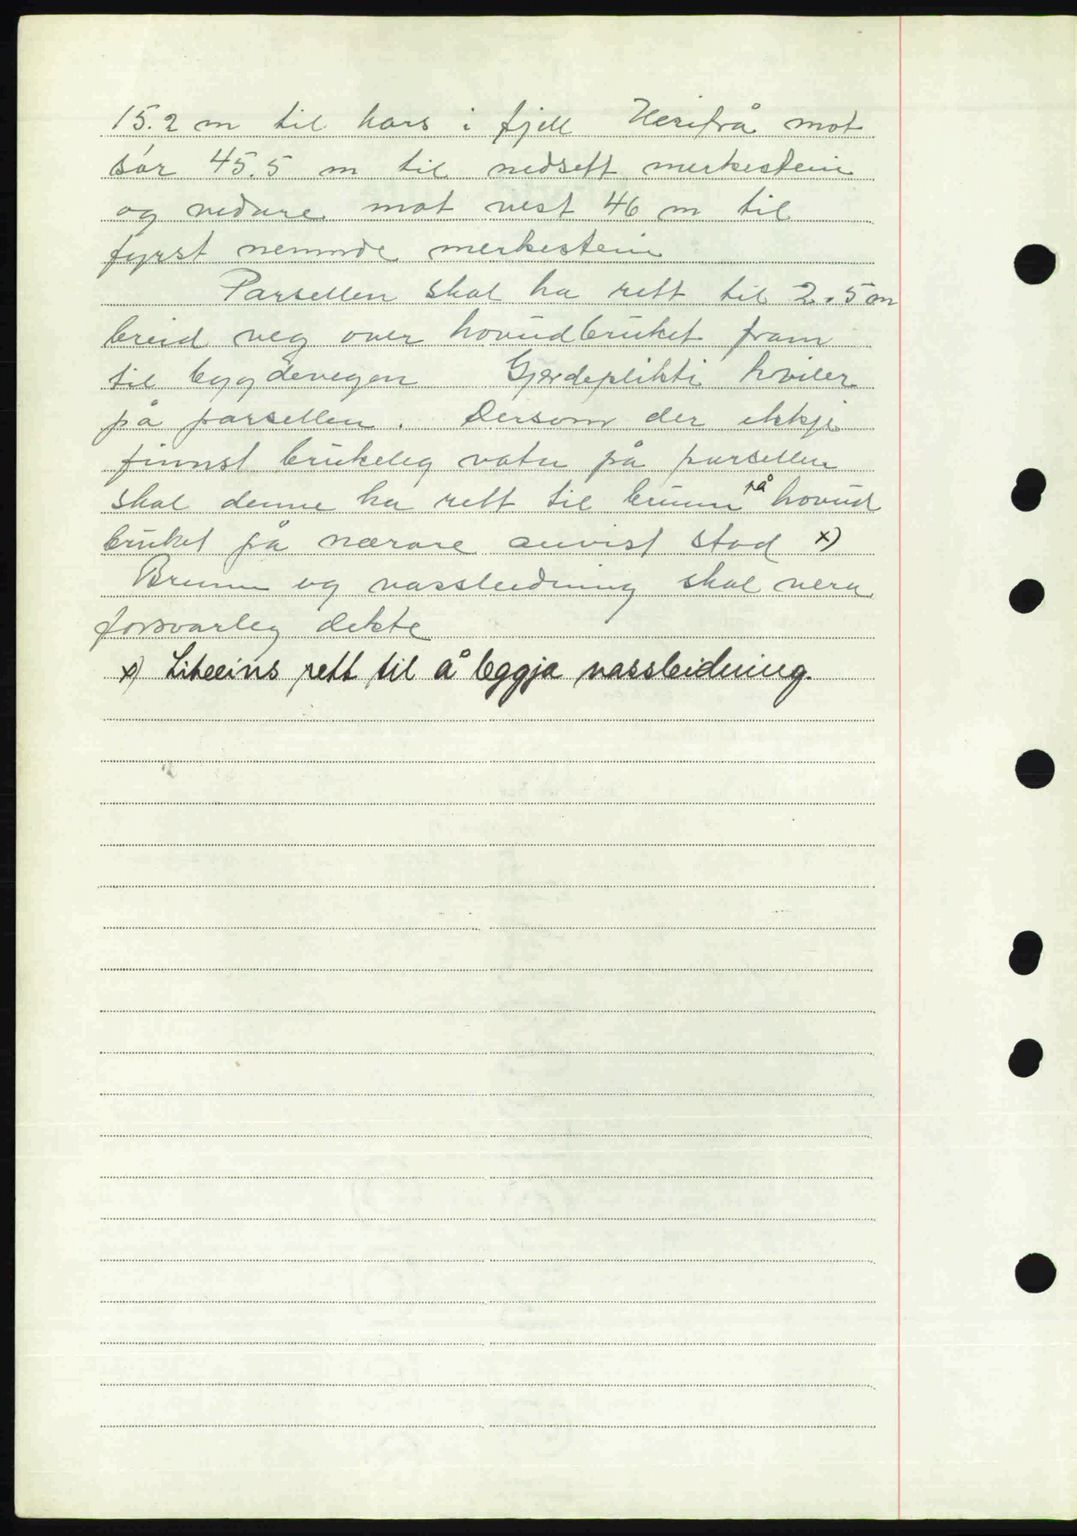 15.2 m til kors i fjell Herifrå mot
sør 45.5 m til nedsett merkestein
og vidare mot vest 46 m til
fyrst nemnde merkestein
Parsellen skal ha rett til 2.5 m
breid veg over hovudbruket fram
til bygdevegen Gjerdeplikti kviler
på parsellen. Dersom der ikkje
finnst brukeleg vatn på parsellen
skal denne ha rett til brunn på hovud
bruket på nærare anvist stad x)
Brunn og vassleidning skal vera
forsvarleg dekte
x) Likeeins rett til å leggja vassleidning.